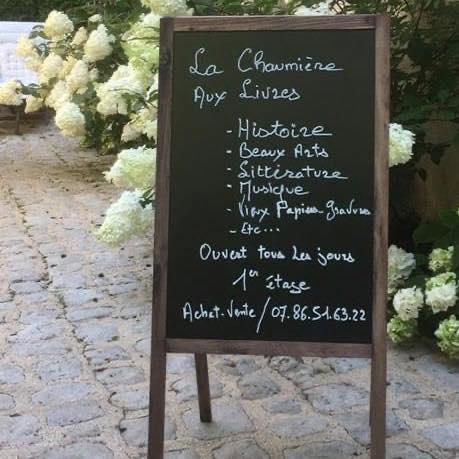 La Chaumière
Aux Livres
- Histoire
- Beaux Arts
- Littérature
- Musique
- Vieux Papiers-Gravures
- Etc...
Ouvert tous les jours
1er étage
Achat-Vente/07.86.51.63.22